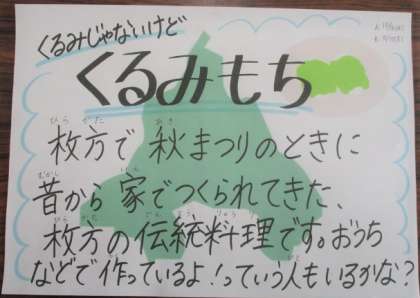 くるみじゃないけど
くるみもち
枚方で秋まつりのときに
昔から家でつくられてきた、
枚方の伝統料理です。おうち
などで作っているよ!っていう人もいるかな?